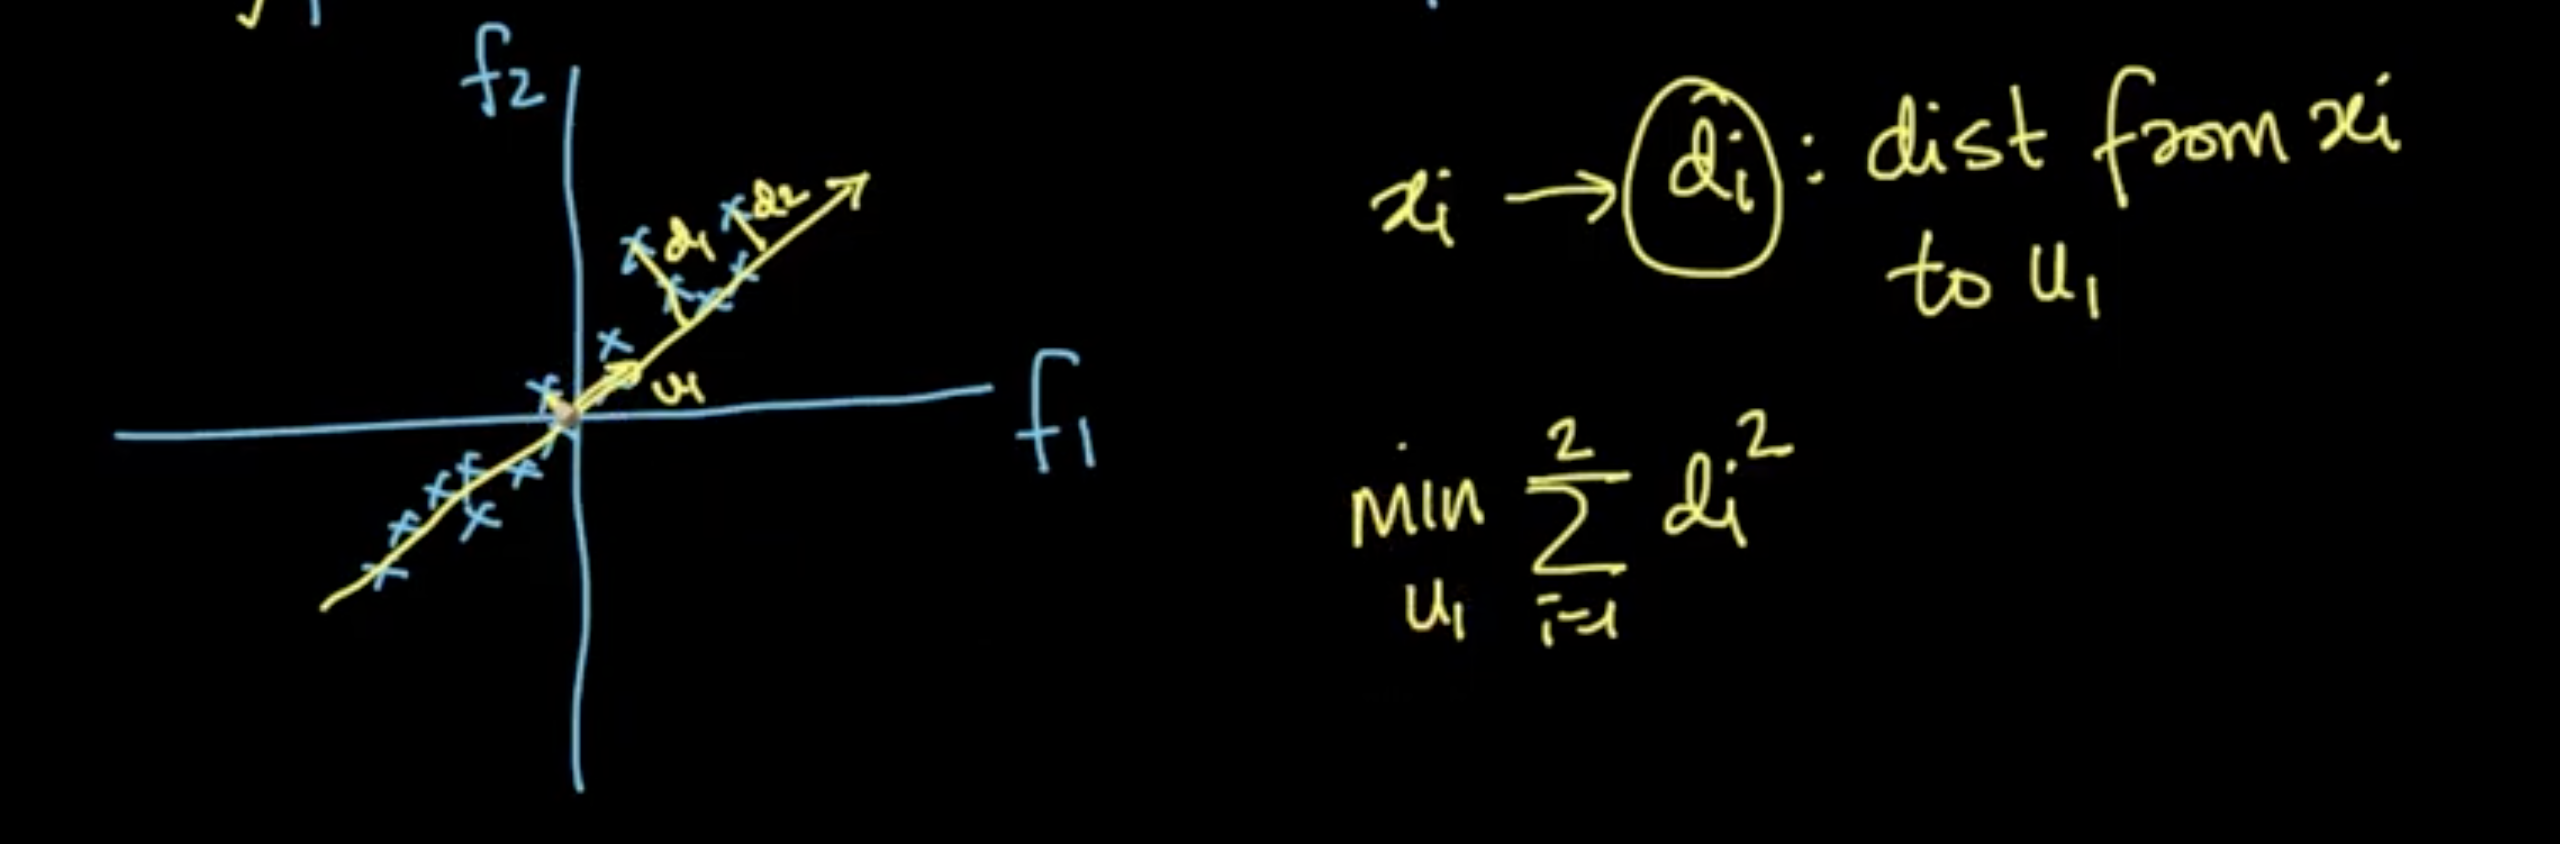 f2
d1 d2
u1
f1
xi → di : dist from xi
to u1
min u1 2 Σ i=1 di²